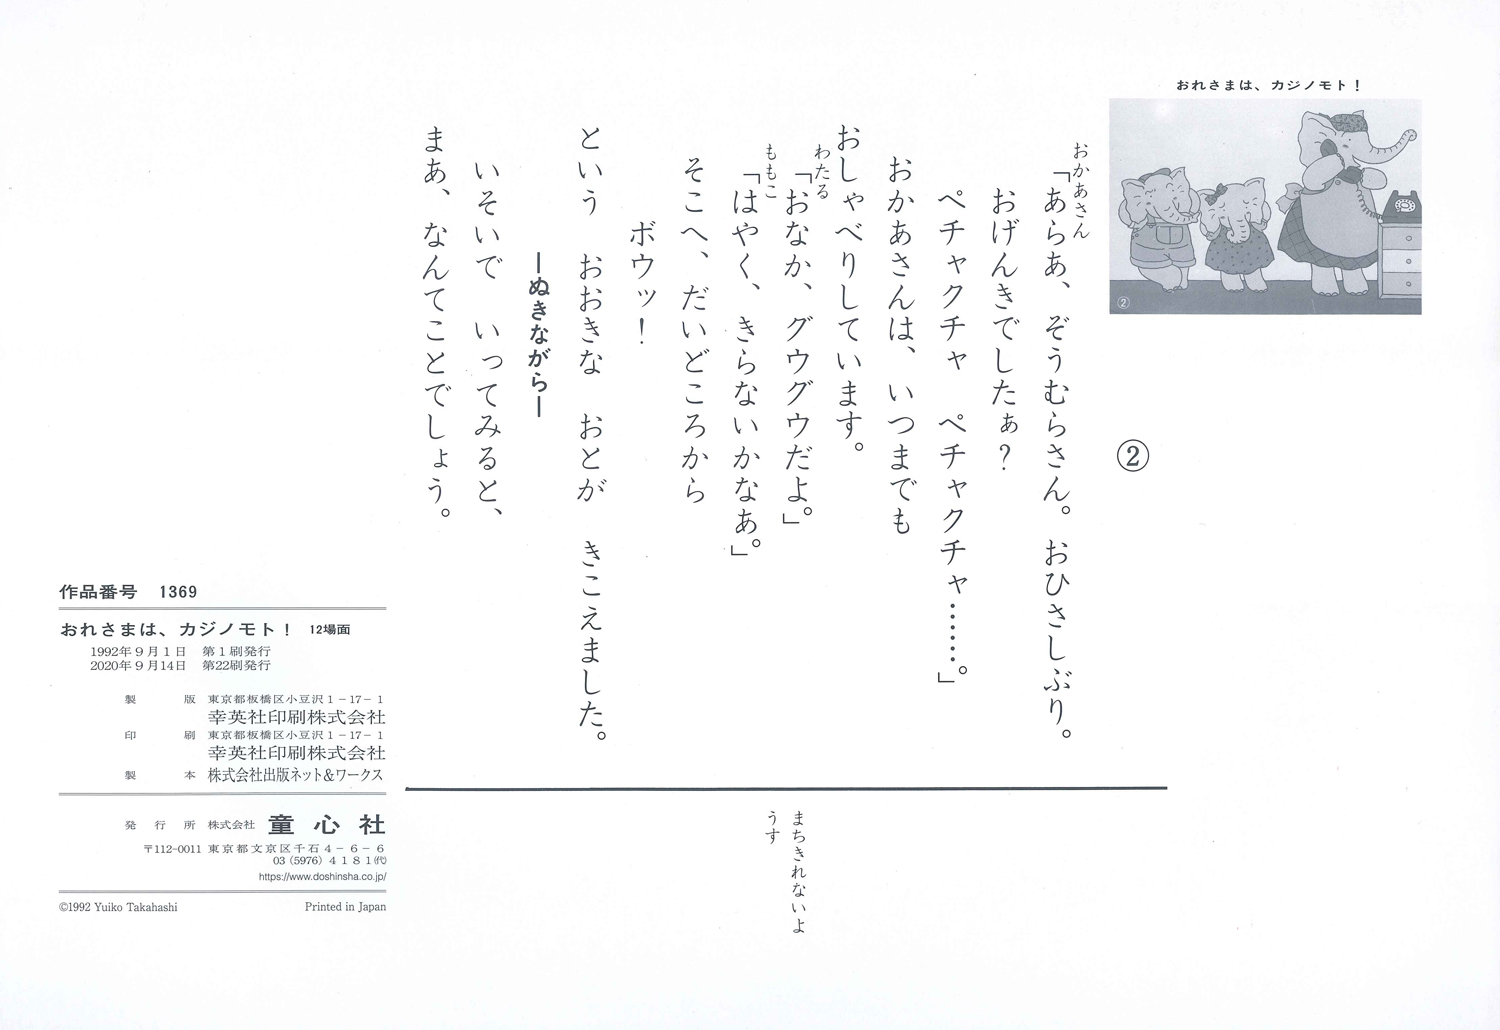 おれさまは、カジノモト！
②
②
おかあさん
「あらあ、ぞうむらさん。おひさしぶり。
おげんきでしたぁ？
ペチャクチャ　ペチャクチャ……。」
おかあさんは、いつまでも
おしゃべりしています。
わたる
「おなか、グウグウだよ。」
ももこ
「はやく、きらないかなあ。」
そこへ、だいどころから
ボウッ！
という　おおきな　おとが　きこえました。
―ぬきながら―
いそいで　いってみると、
まあ、なんてことでしょう。
まちきれないよ
うす
作品番号　1369
おれさまは、カジノモト！　12場面
1992年９月１日　第１刷発行
2020年９月14日　第22刷発行
製版　東京都板橋区小豆沢１−17−１
幸英社印刷株式会社
印刷　東京都板橋区小豆沢１−17−１
幸英社印刷株式会社
製本　株式会社出版ネット＆ワークス
発行所　株式会社　童心社
〒112-0011 東京都文京区千石４−６−６
03 (5976) ４１８１㈹
https://www.doshinsha.co.jp/
©1992 Yuiko Takahashi　Printed in Japan